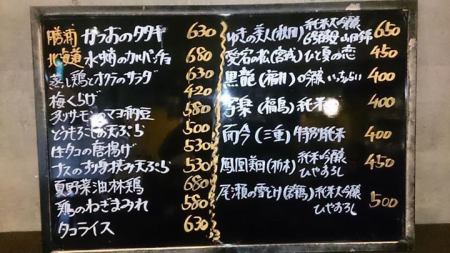 勝浦 かつおのタタキ 630
北海道 水タコのカルパッチョ 680
蒸し鶏とオクラのサラダ 630
梅くらげ 420
サーモンマヨ納豆 580
とうもろこしの天ぷら 500
タコの唐揚げ 530
ナスのナッツ挟み天ぷら 530
夏野菜油淋鶏 680
鶏のねぎまみれ 580
タコライス 630
ゆきの美人(秋田) 純米大吟醸 山田錦 650
愛宕の松(宮城) ひと夏の恋 450
黒龍(福井) 吟醸 いっちょらい 400
写楽(福島) 純米 400
而今(三重) 特別純米 400
鳳凰美田(栃木) 純米吟醸 ひやおろし 450
尾瀬の雪どけ(群馬) 純米大吟醸 ひやおろし 500